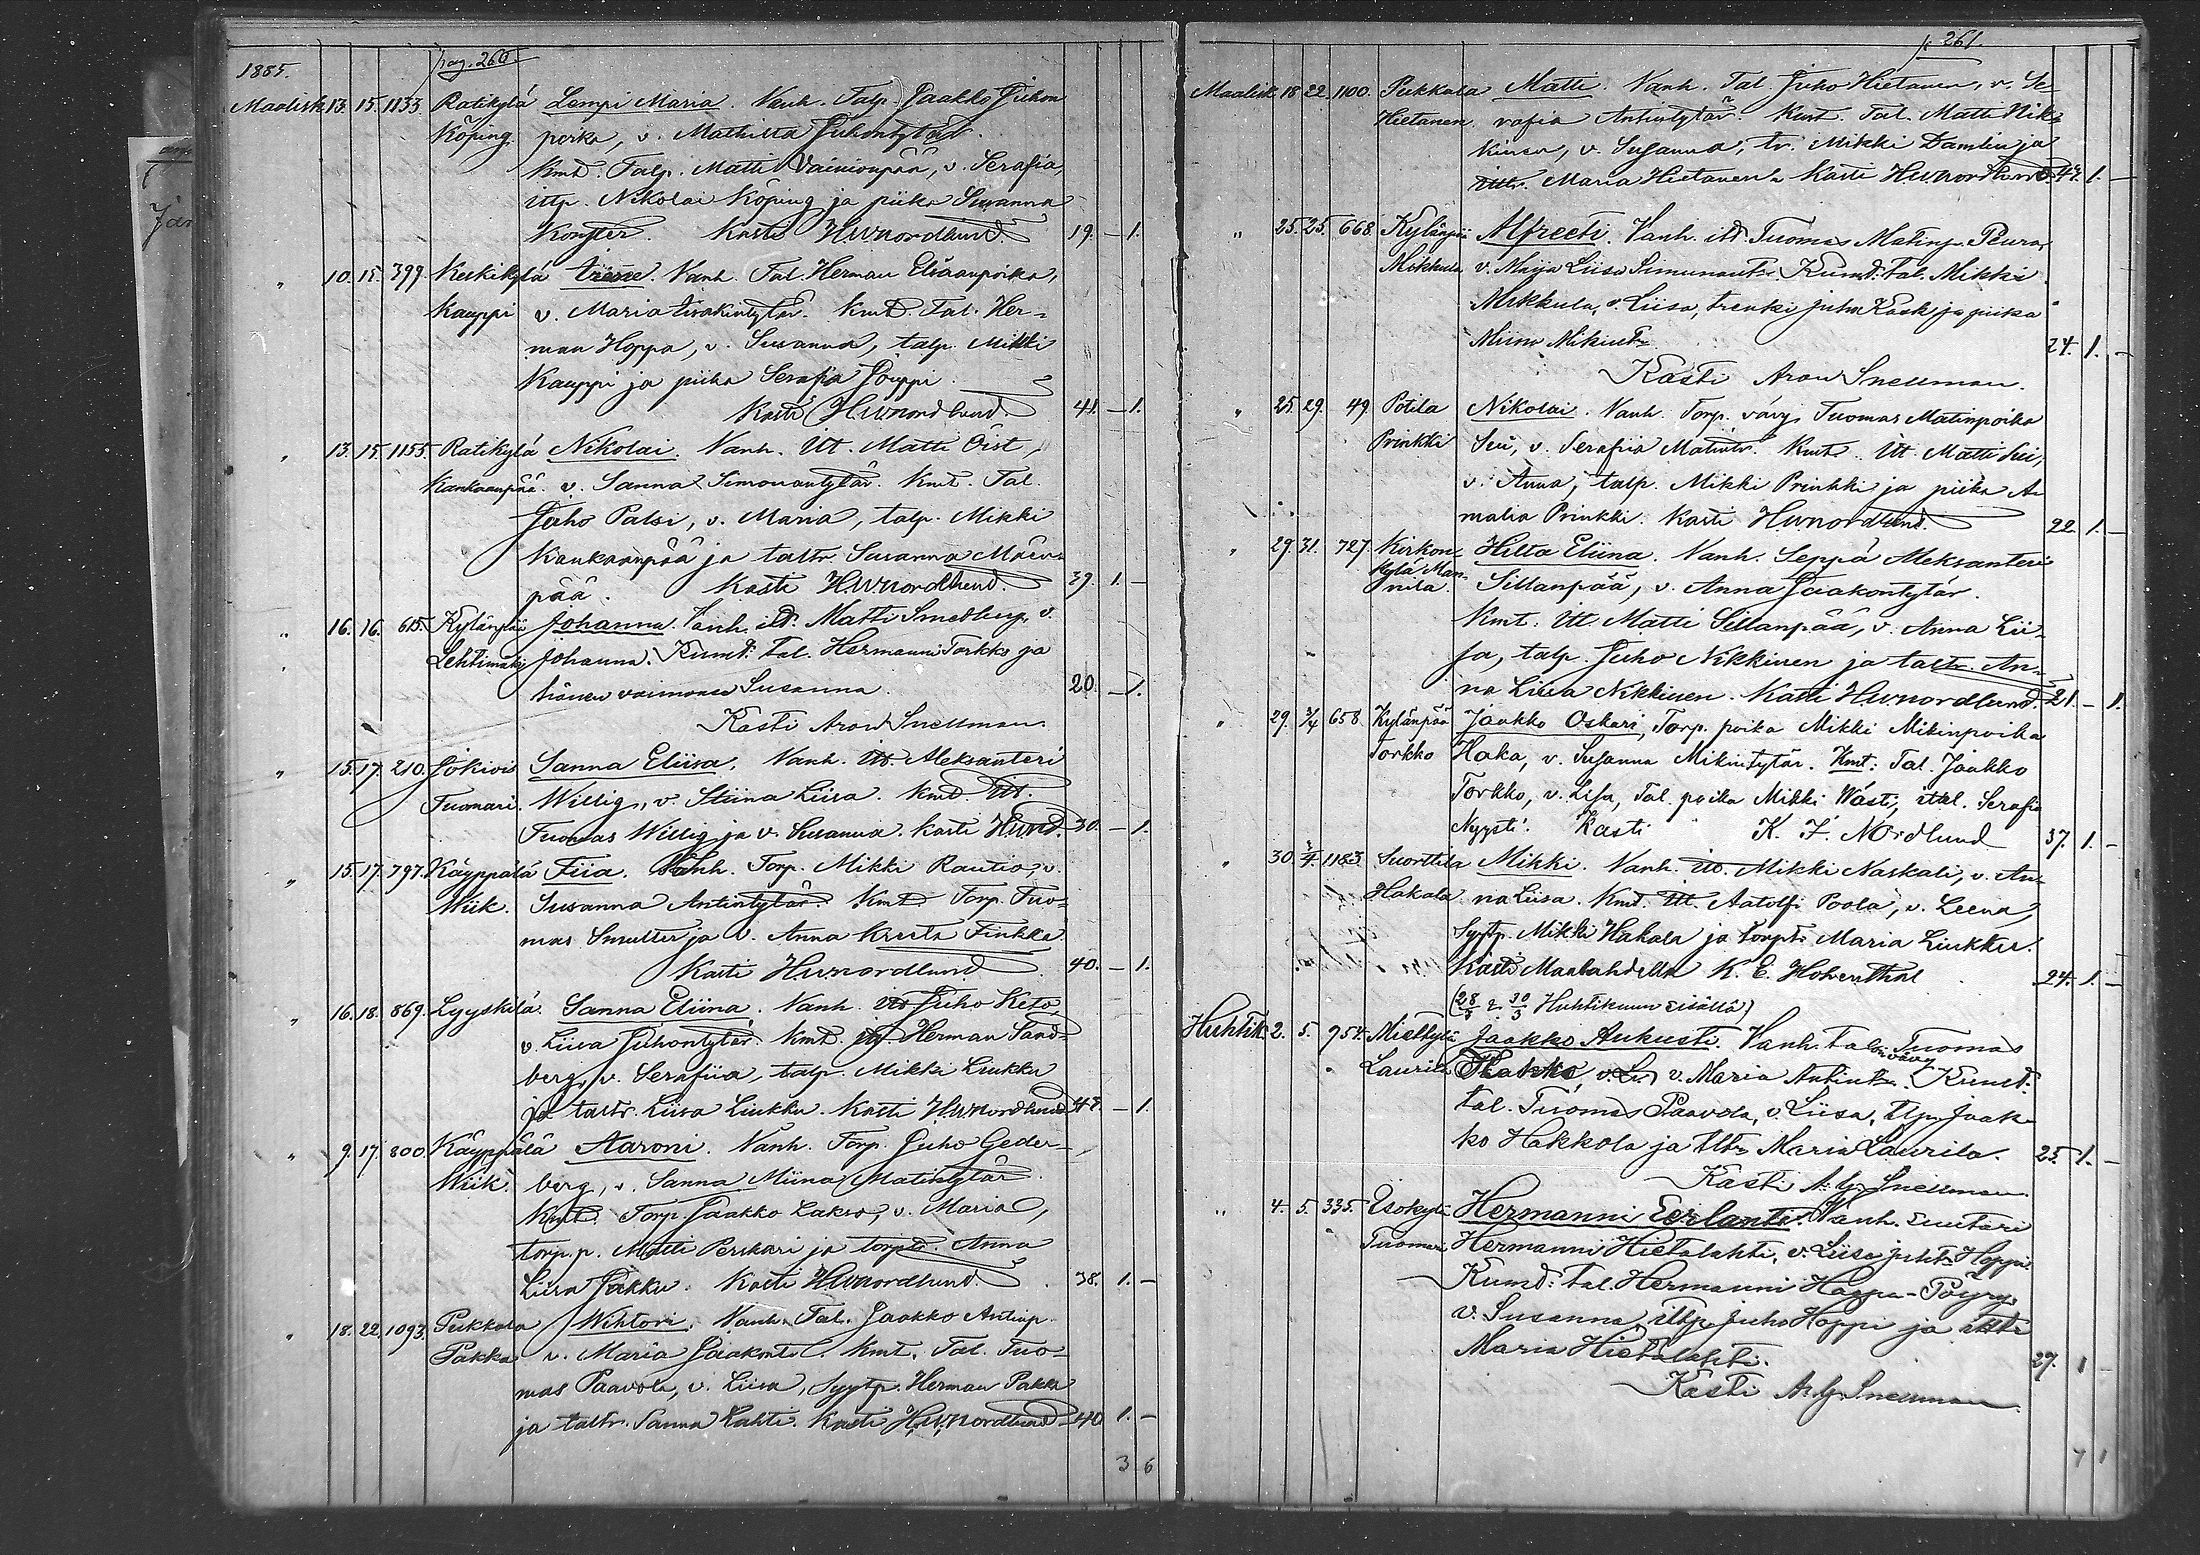 pag. 260.
1885.
Maalisk. 13. 15. 1133. Ratikylä Lempi Maria. Vanh. Talp. Jaakko Juhon
Köping. poika, v. Mathilta Juhontytär.
Kmt. Talp. Matti Vainionpää, v. Serafia,
ittp. Nikolai Köping ja piika Susanna
Kasti H.W. Nordlund. 19. — 1.
" 10. 15. 399. Keskikylä Vanh. Tal. Herman Elsaanpoika,
Kauppi v. Maria Iisakintytär. Kmt. Tal. Her-
man Hoppa, v. Susanna, talp. Mikki
Kauppi ja piika Serafia Jouppi.
Kasti H.W. Nordlund. 41. — 1.
" 13. 15. 1155. Ratikylä Nikolai. Vanh. Itt. Matti Öist,
Kankaanpää. v. Sanna Simonantytär. Kmt. Tal.
Juho Palsi, v. Maria, talp. Mikki
Kankaanpää ja taltr Susanna Mäen-
pää. Kasti H.W. Nordlund. 39. 1. —
" 16. 16. 615. Kylänpää Johanna. Vanh. itt. Matti Smedling, v.
Lehtimäki Johanna. Kumd: tal. Hermanni Torkko ja
hänen vaimonsa Susanna. 20. — 1.
Kasti Aron Snellman.
" 15. 17. 210. Jokivis Sanna Eliisa. Vanh. Itt. Aleksanteri
Tuomari. Willig, v. Stiina Liisa. Kmt. Itt.
Tuomas Willig ja v. Susanna. Kasti H.W.nd. 30. — 1.
" 15. 17. 797. Käyppälä Fiia. Vanh. Torp. Mikki Rautio, v.
Wiik. Susanna Antintytär. Kmt. Torp. Tuo-
mas Smulter ja v. Anna Kreeta Finkka.
Kasti H.W. Nordlund. 40. — 1.
" 16. 18. 869. Lyyskilä. Sanna Eliina. Vanh. Itt. Juho Keto,
v. Liisa Juhontytär. Kmt. Herman Sand-
berg, v. Serafiia, talp. Mikki Linkku
ja taltr. Liisa Linkku. Kasti H.W. Nordlund. 47. — 1.
" 9. 17. 800. Käyppälä Aaroni. Vanh. Torp. Juho Geder-
Wiik. berg, v. Sanna Miina Matintytär.
Kmt. Torp. Jaakko Lakso, v. Maria,
torp.p. Matti Perkari ja torptr. Anna
Liisa Jakku. Kasti H.W. Nordlund. 38. 1. —
" 18. 22. 1093. Pukkala Wihtori. Vanh. Tal. Jaakko Antinp.
Pakka v. Maria Jaakontr. Kmt. Tal. Tuo-
mas Paavola, v. Liisa, Syytp. Herman Pakka
ja taltr. Sanna Lahti. Kasti H.W. Nordlund 40. 1. —
3 6
p. 261.
Maalisk. 18. 22. 1100. Pukkala Matti. Vanh. Tal. Juho Hietanen, v. Se-
Hietanen. rafia Antintytär. Kmt. Tal. Matti Nik-
kinen, v. Susanna, tr. Mikki Damlin ja
Maria Hietanen. Kasti H.W. Nordlund. 47. 1. —
" 25. 25. 668. Kylänpää Alfreeti. Vanh. itd. Tuomas Matinp. Peura,
Mikkula. v. Maija Liisa Simunantr. Kumd: tal. Mikki
Mikkula, v. Liisa, trenki Juho Kask ja piika
Miina Mikintr. 24. 1. —
Kasti Aron Snellman.
" 25. 29. 49. Potila Nikolai. Vanh. Torp. vävy Tuomas Matinpoika
Prinkki Sui, v. Serafiia Matintr. Kmt. Itt. Matti Sui,
v. Anna, talp. Mikki Prinkki ja piika A-
malia Prinkki. Kasti H.W. Nordlund. 22. 1. —
" 29. 31. 727. Kirkon- Hilta Eliina. Vanh. Seppä Aleksanteri
kylä Man- Sillanpää, v. Anna Jaakontytär.
nila. Kmt. Itt. Matti Sillanpää, v. Anna Lii-
sa, talp. Juho Nikkinen ja taltr. An-
na Liisa Nikkinen. Kasti H.W. Nordlund. 21. — 1.
" 29. 3/4 658. Kylänpää Jaakko Oskari, Torp. poika Mikki Mikinpoika
Torkko Haka, v. Susanna Mikintytär. Kmt: Tal. Jaakko
Torkko, v. Lisa, Tal. poika Mikki Wästi, ittel. Serafia
Nyysti. Kasti K. F. Nordlund 37. 1. —
" 30. 1183. Suorttila Mikki. Vanh. Itt. Mikki Naskali, v. An-
Hakala na Liisa. Kmt. Itt. Aatolfi Poola, v. Leena,
Syytp. Mikki Hakala ja torptr Maria Linkku.
Kasti Maalahdella K. E. Hohenthal 24. 1. —
(28/5 & 30/5 Huhtikuun sisällä)
Huhtik. 2. 5. 954. Miekkylä Jaakko Aukusti. Vanh. tal. vävy Tuomas
Laurila v. Maria Antintr. Kumd.
tal. Tuomas Paavola, v. Liisa, tlp. Jaak-
ko Hakkola ja tltr Maria Laurila. 25. 1. —
Kasti A. G. Snellman.
" 4. 5. 335. Isokylä Hermanni Eerlanti. Vanh. suutari
Tuomari Hermanni Hietalahti, v. Liisa Juhtr. Hoppi
Kumd: tal. Hermanni Hoppa-Pöyry,
v. Susanna, ittp. Juho Hoppi ja ittr
Maria Hietalahti. 27. 1 —
Kasti A. G. Snellman
7 1